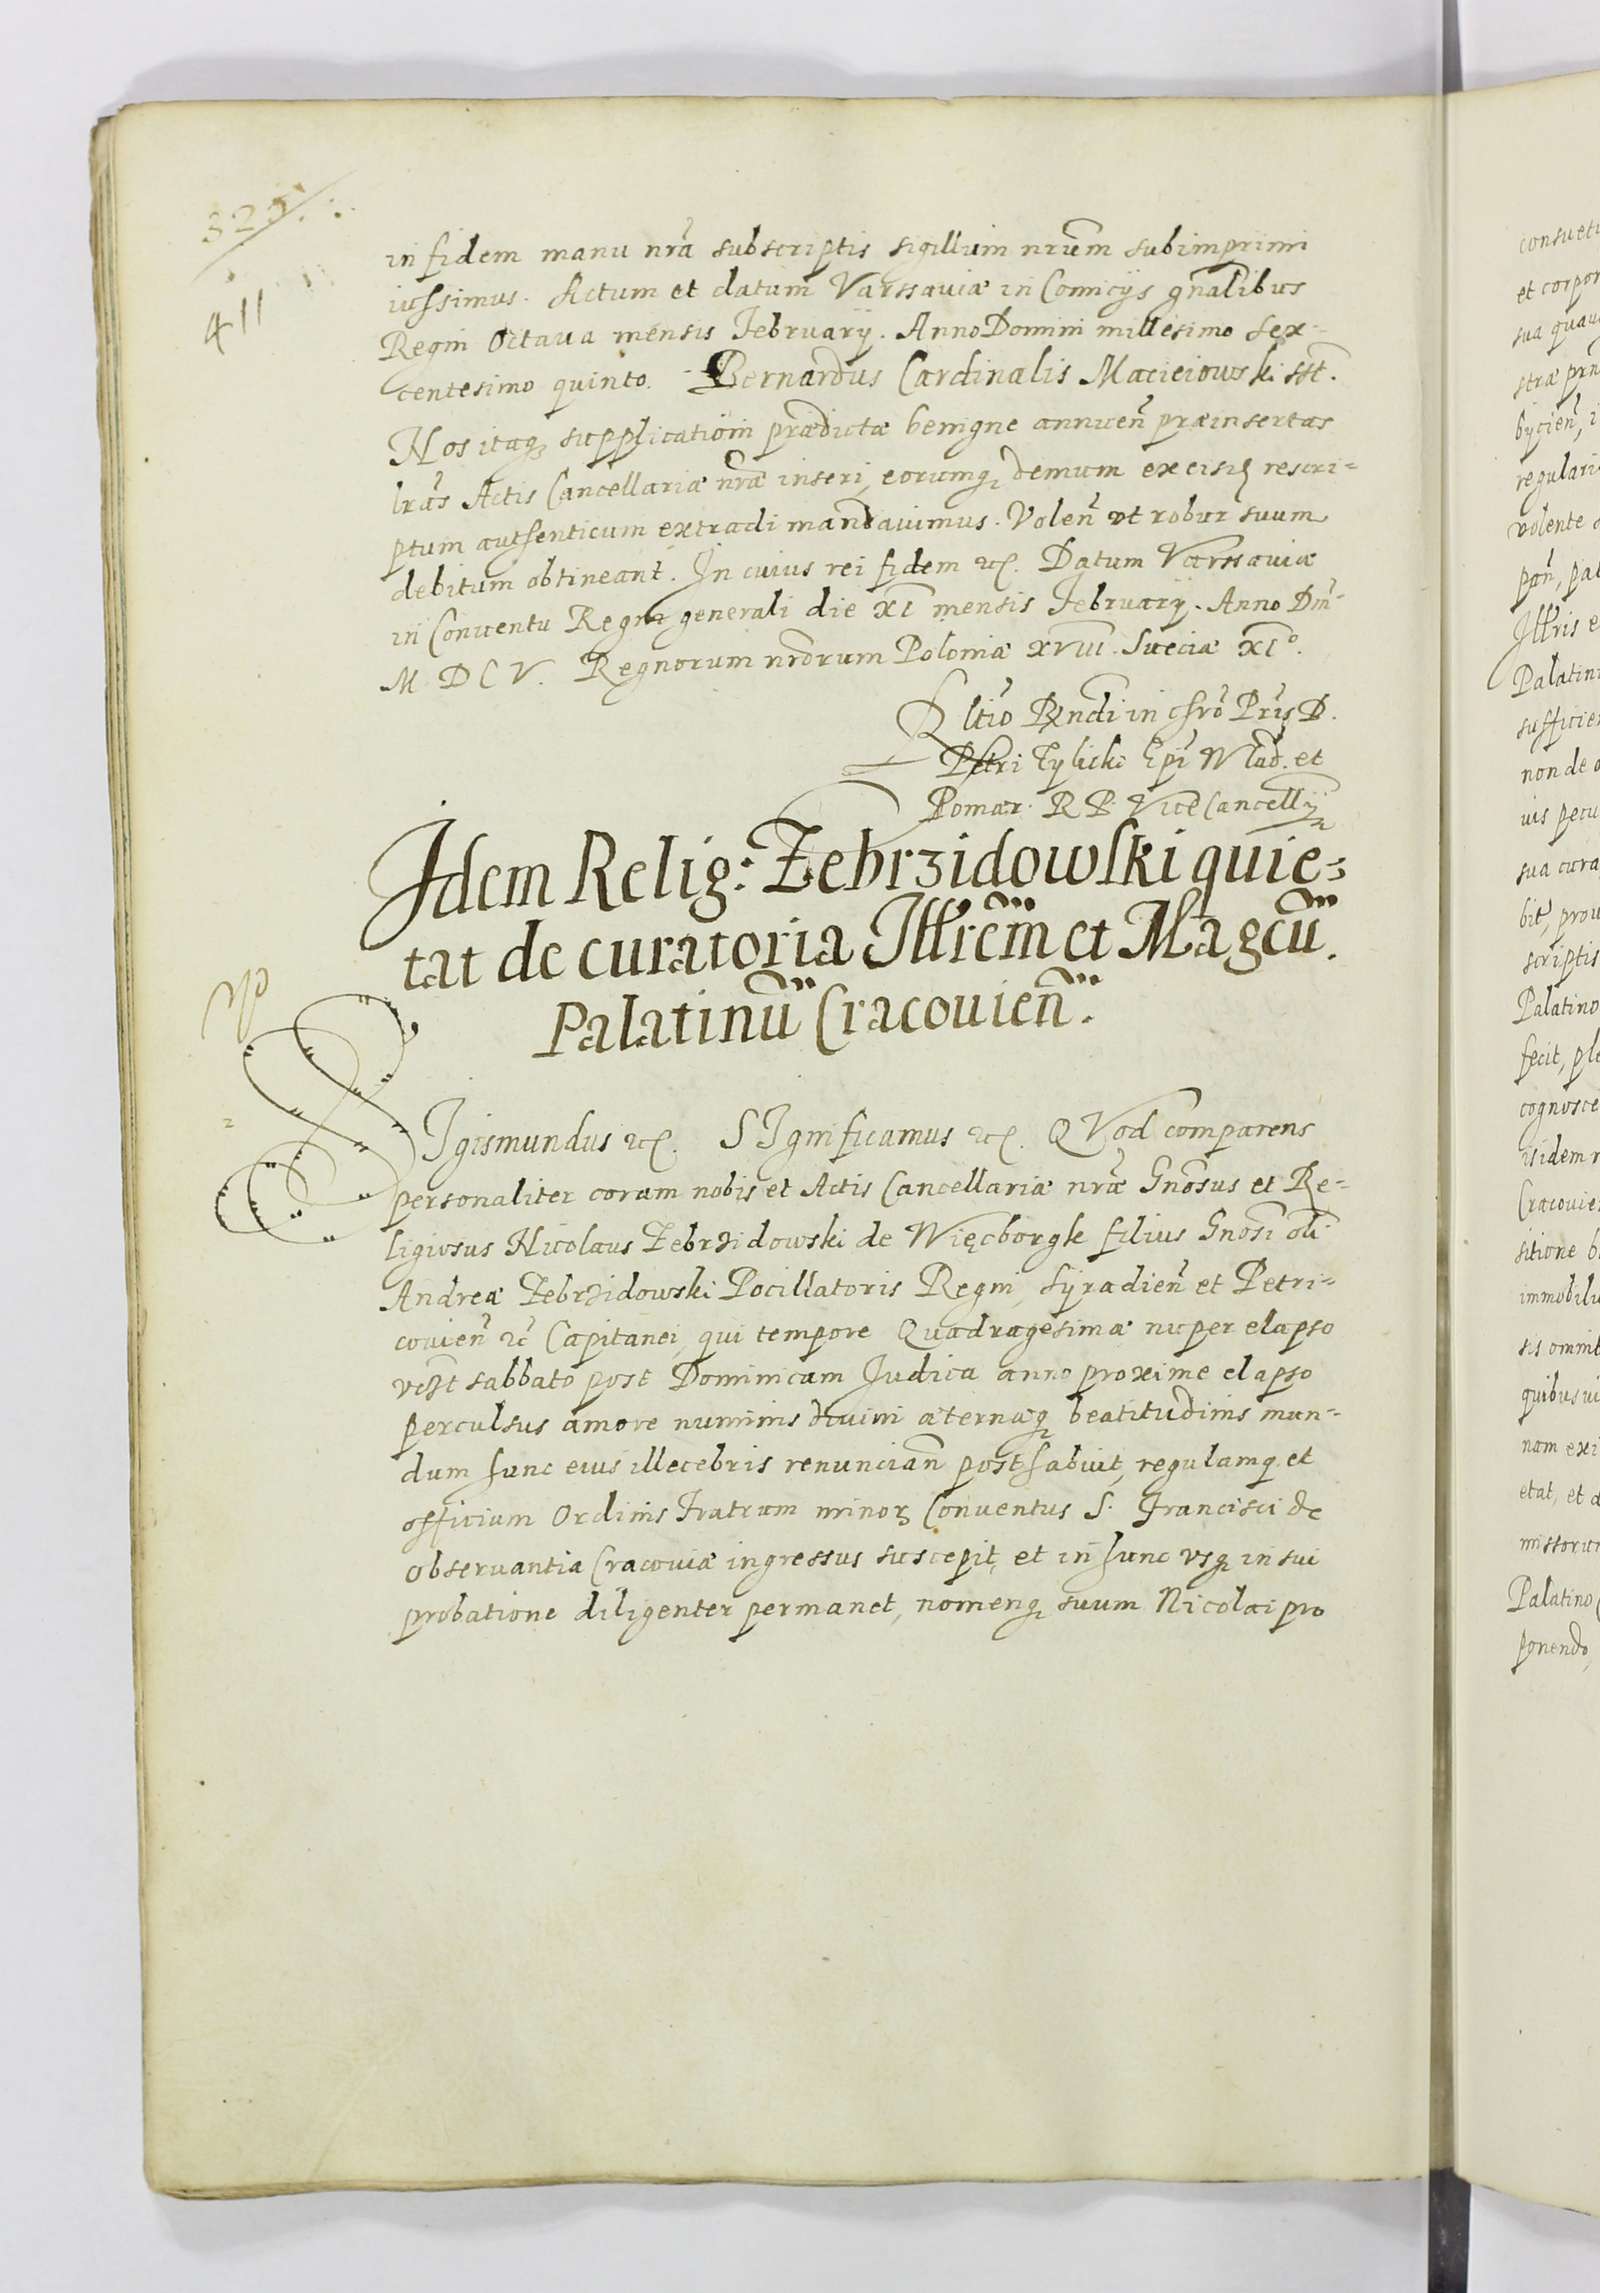 411
in fidem manu nrã subscriptis sigillum nrum subimprimi
iussimus. Actum et datum Varssauiæ in Comicijs gnalibus
Regni Octaua mensis February. Anno Domini millesimo sex-
centesimo quinto. Bernardus Cardinalis Macieiowski sst.
Nos itaq supplicatioñi prædictæ benigne annuen̄ præinsertas
lrãs Actis Cancellariæ nræ inseri, eorumq demum ex eisd rescri-
ptum authenticum extradi mandauimus. Volen̄ vt robur suum
debitum obtineant. In cuius rei fidem etc. Datum Varssauiæ
in Conuentu Regni generali die XI mensis February. Anno Dni
M D C V. Regnorum nrorum Poloniæ XVIII. Sueciæ XI°.
Rltio Rndi in Chro Pris D.
Petri Tylicki Epi Wlad. et
Pomær. R P. Vice Cancellij
Idem Relig: Zebrzidowski quie-
tat de curatoria Illrem̄ et Magcū.
Palatinū Cracouien̄.
SIgismundus etc. SIgnificamus etc. QVod comparens
personaliter coram nobis et Actis Cancellariæ nræ Gnosus et Re-
ligiosus Nicolaus Zebrzidowski de Więcborgk filius Gnosi oli
Andreæ Zebrzidowski Pocillatoris Regni, Syradien̄ et Petri-
couien̄ etc Capitanei, qui tempore Quadragesimæ nuper elapso
vczt sabbato post Dominicam Iudica anno proxime elapso
perculsus amore numinis diuini æternæq beatitudinis mun-
dum hunc eius illecebris renuncian̄ posthabuit, regulamq et
officium Ordinis Fratrum minor Conuentus S. Francisci de
obseruantia Cracouiæ ingressus suscepit, et in hunc vsq in sui
probatione diligenter permanet, nomenq suum Nicolai pro
consuet
et corpor
sua quau
stræ prn
regulari
volente
Palatin
sufficie
non de
uis pecu
sua cura
bit, prou
scriptis
Palatino
fecit, ple
cognosce
isidem
Cracouie
sitione b
immobili
sis omnib
quibus ui
nam exi
etat, et
missorum
Palatino
ponendo,